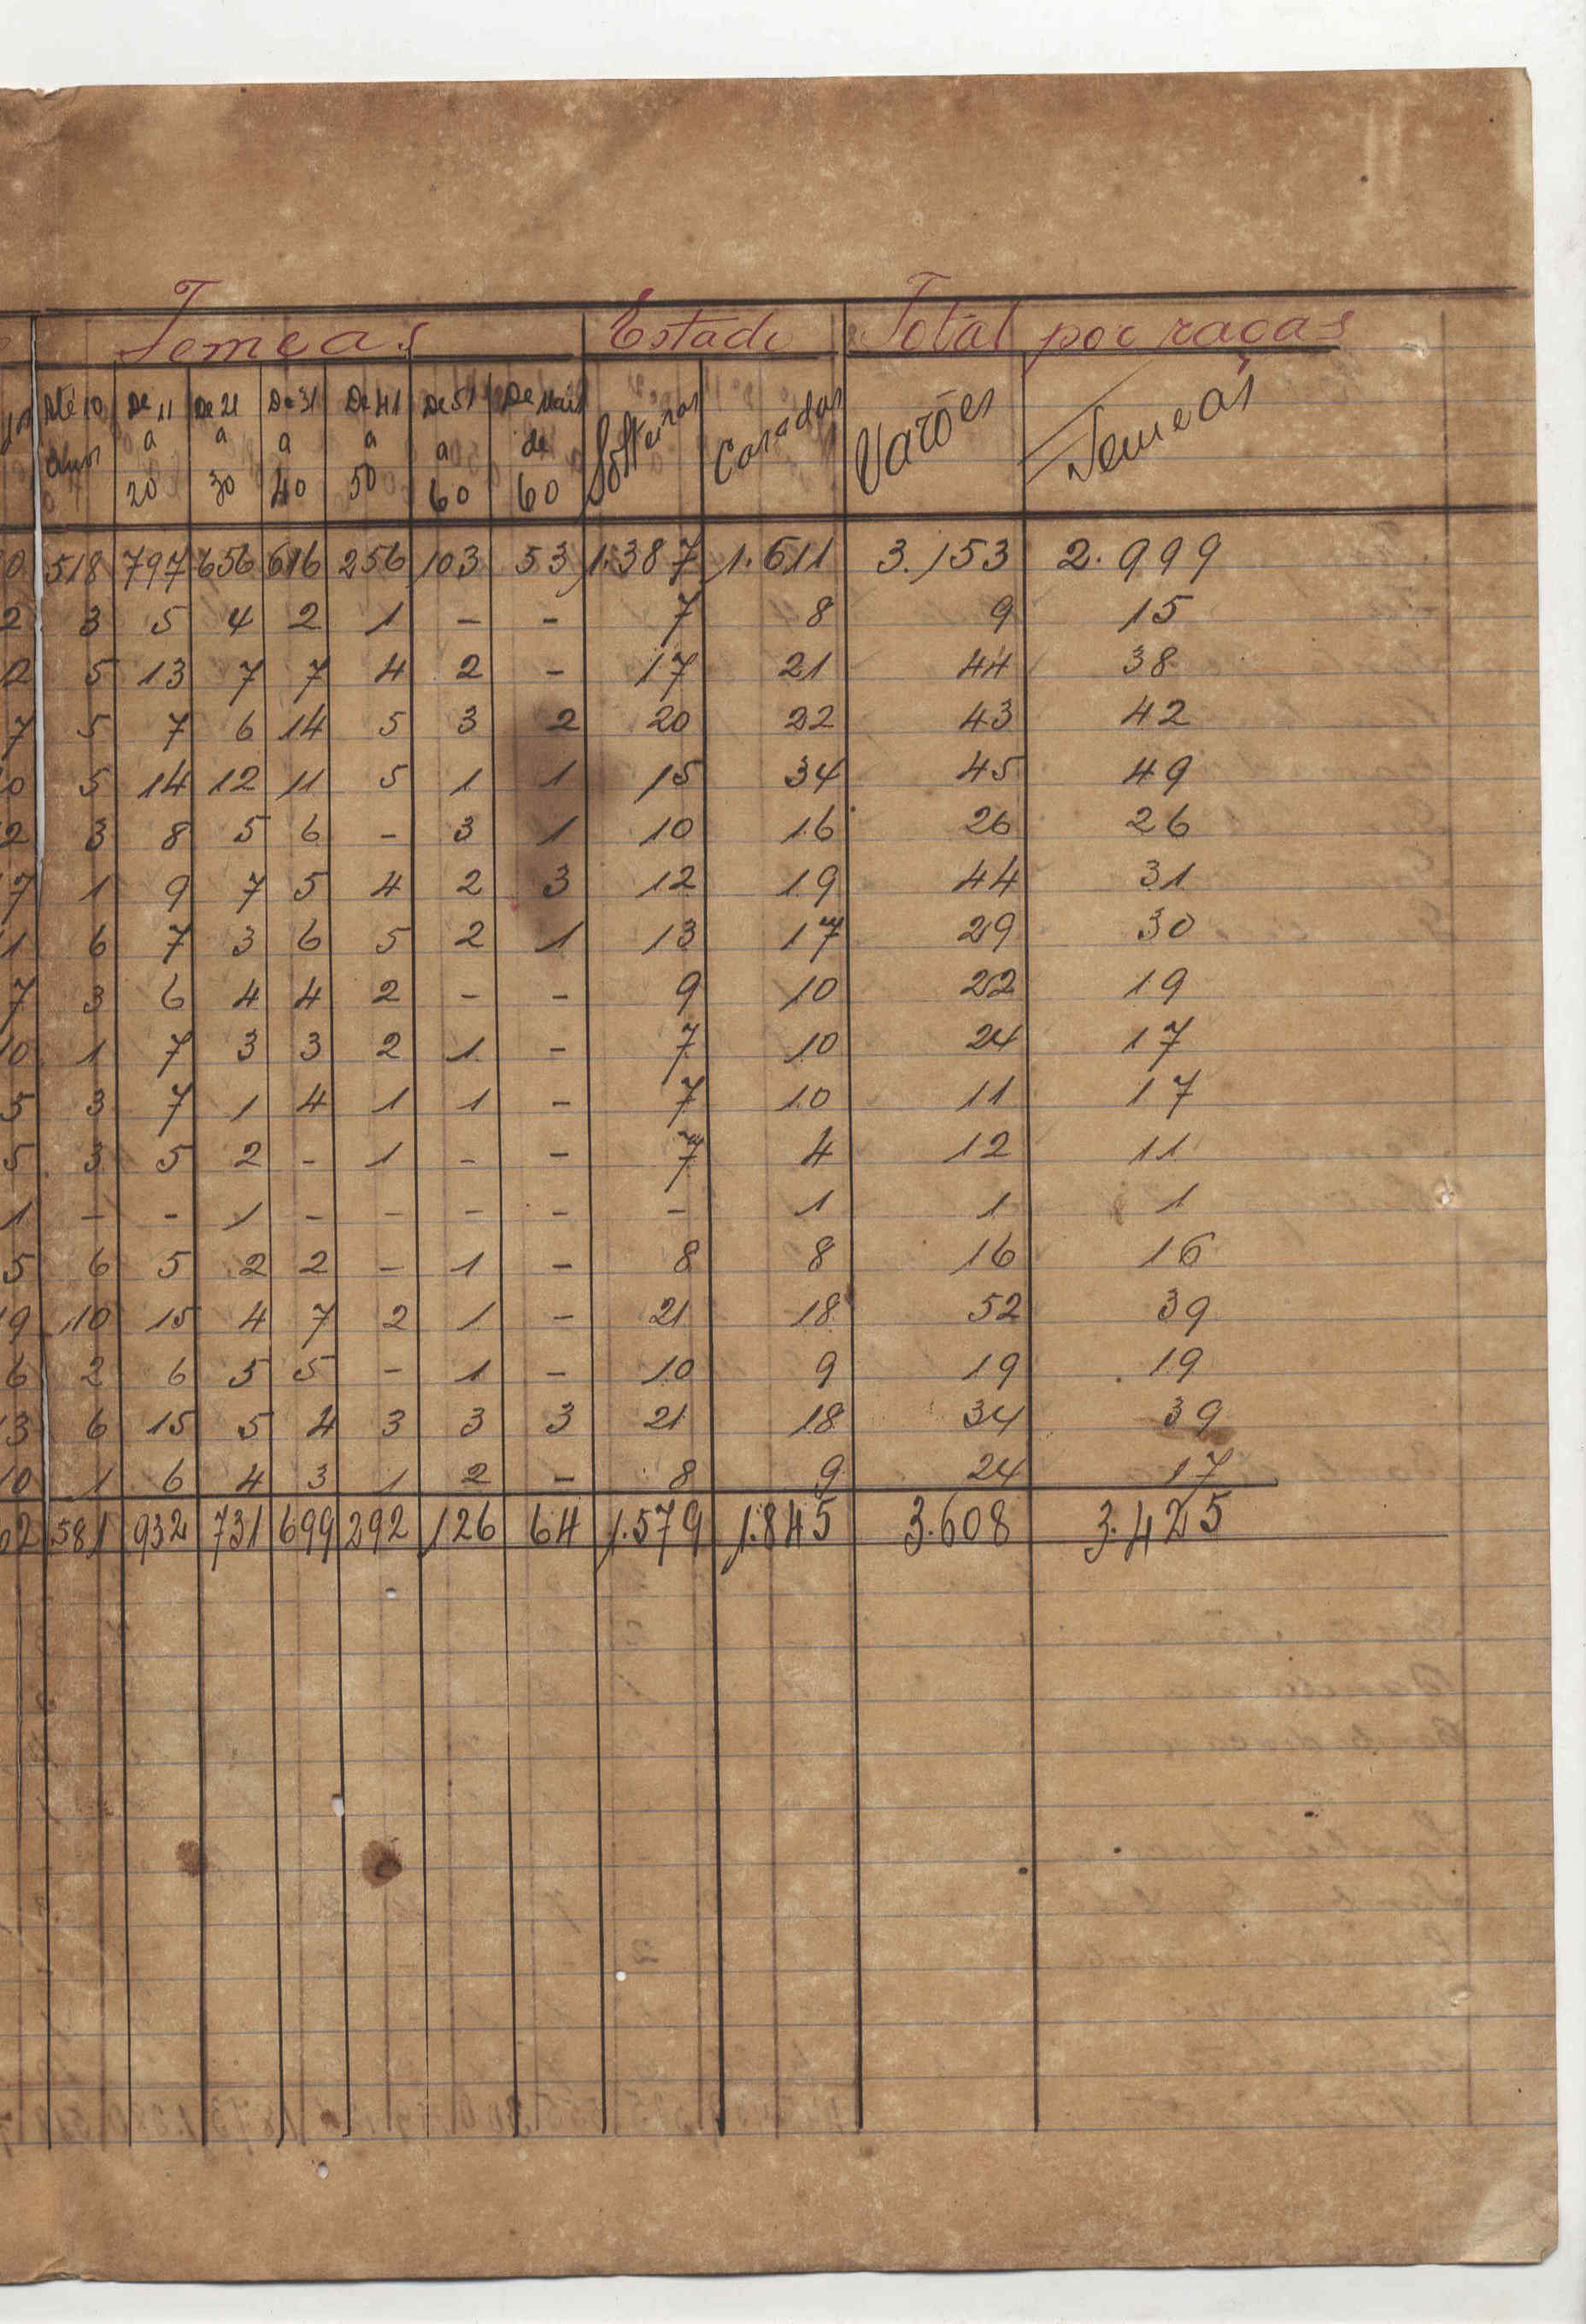 Femeas Estado Total por raças
Até 10 anos De 11 a 20 De 21 a 30 De 31 a 40 De 41 a 50 De 51 a 60 De mais de 60 Solteiras Casadas Varões Femeas
0 518 797 656 616 256 103 53 1.387 1.611 3.153 2.999
2 3 5 4 2 1 - - 7 8 9 15
2 5 13 7 7 4 2 - 17 21 44 38
7 5 7 6 14 5 3 2 20 22 43 42
0 5 14 12 11 5 1 1 15 34 45 49
2 3 8 5 6 - 3 1 10 16 26 26
7 1 9 7 5 4 2 3 12 19 44 31
1 6 7 3 6 5 2 1 13 17 29 30
7 3 6 4 4 2 - - 9 10 22 19
10 1 7 3 3 2 1 - 7 10 24 17
5 3 7 1 4 1 1 - 7 10 11 17
5 3 5 2 - 1 - - 7 4 12 11
1 - - 1 - - - - - 1 1 1
5 6 5 2 2 - 1 - 8 8 16 16
19 10 15 4 7 2 1 - 21 18 52 39
6 2 6 5 5 - 1 - 10 9 19 19
13 6 15 5 4 3 3 3 21 18 34 39
10 1 6 4 3 1 2 - 8 9 24 17
62 581 932 731 699 292 126 64 1.579 1.845 3.608 3.425